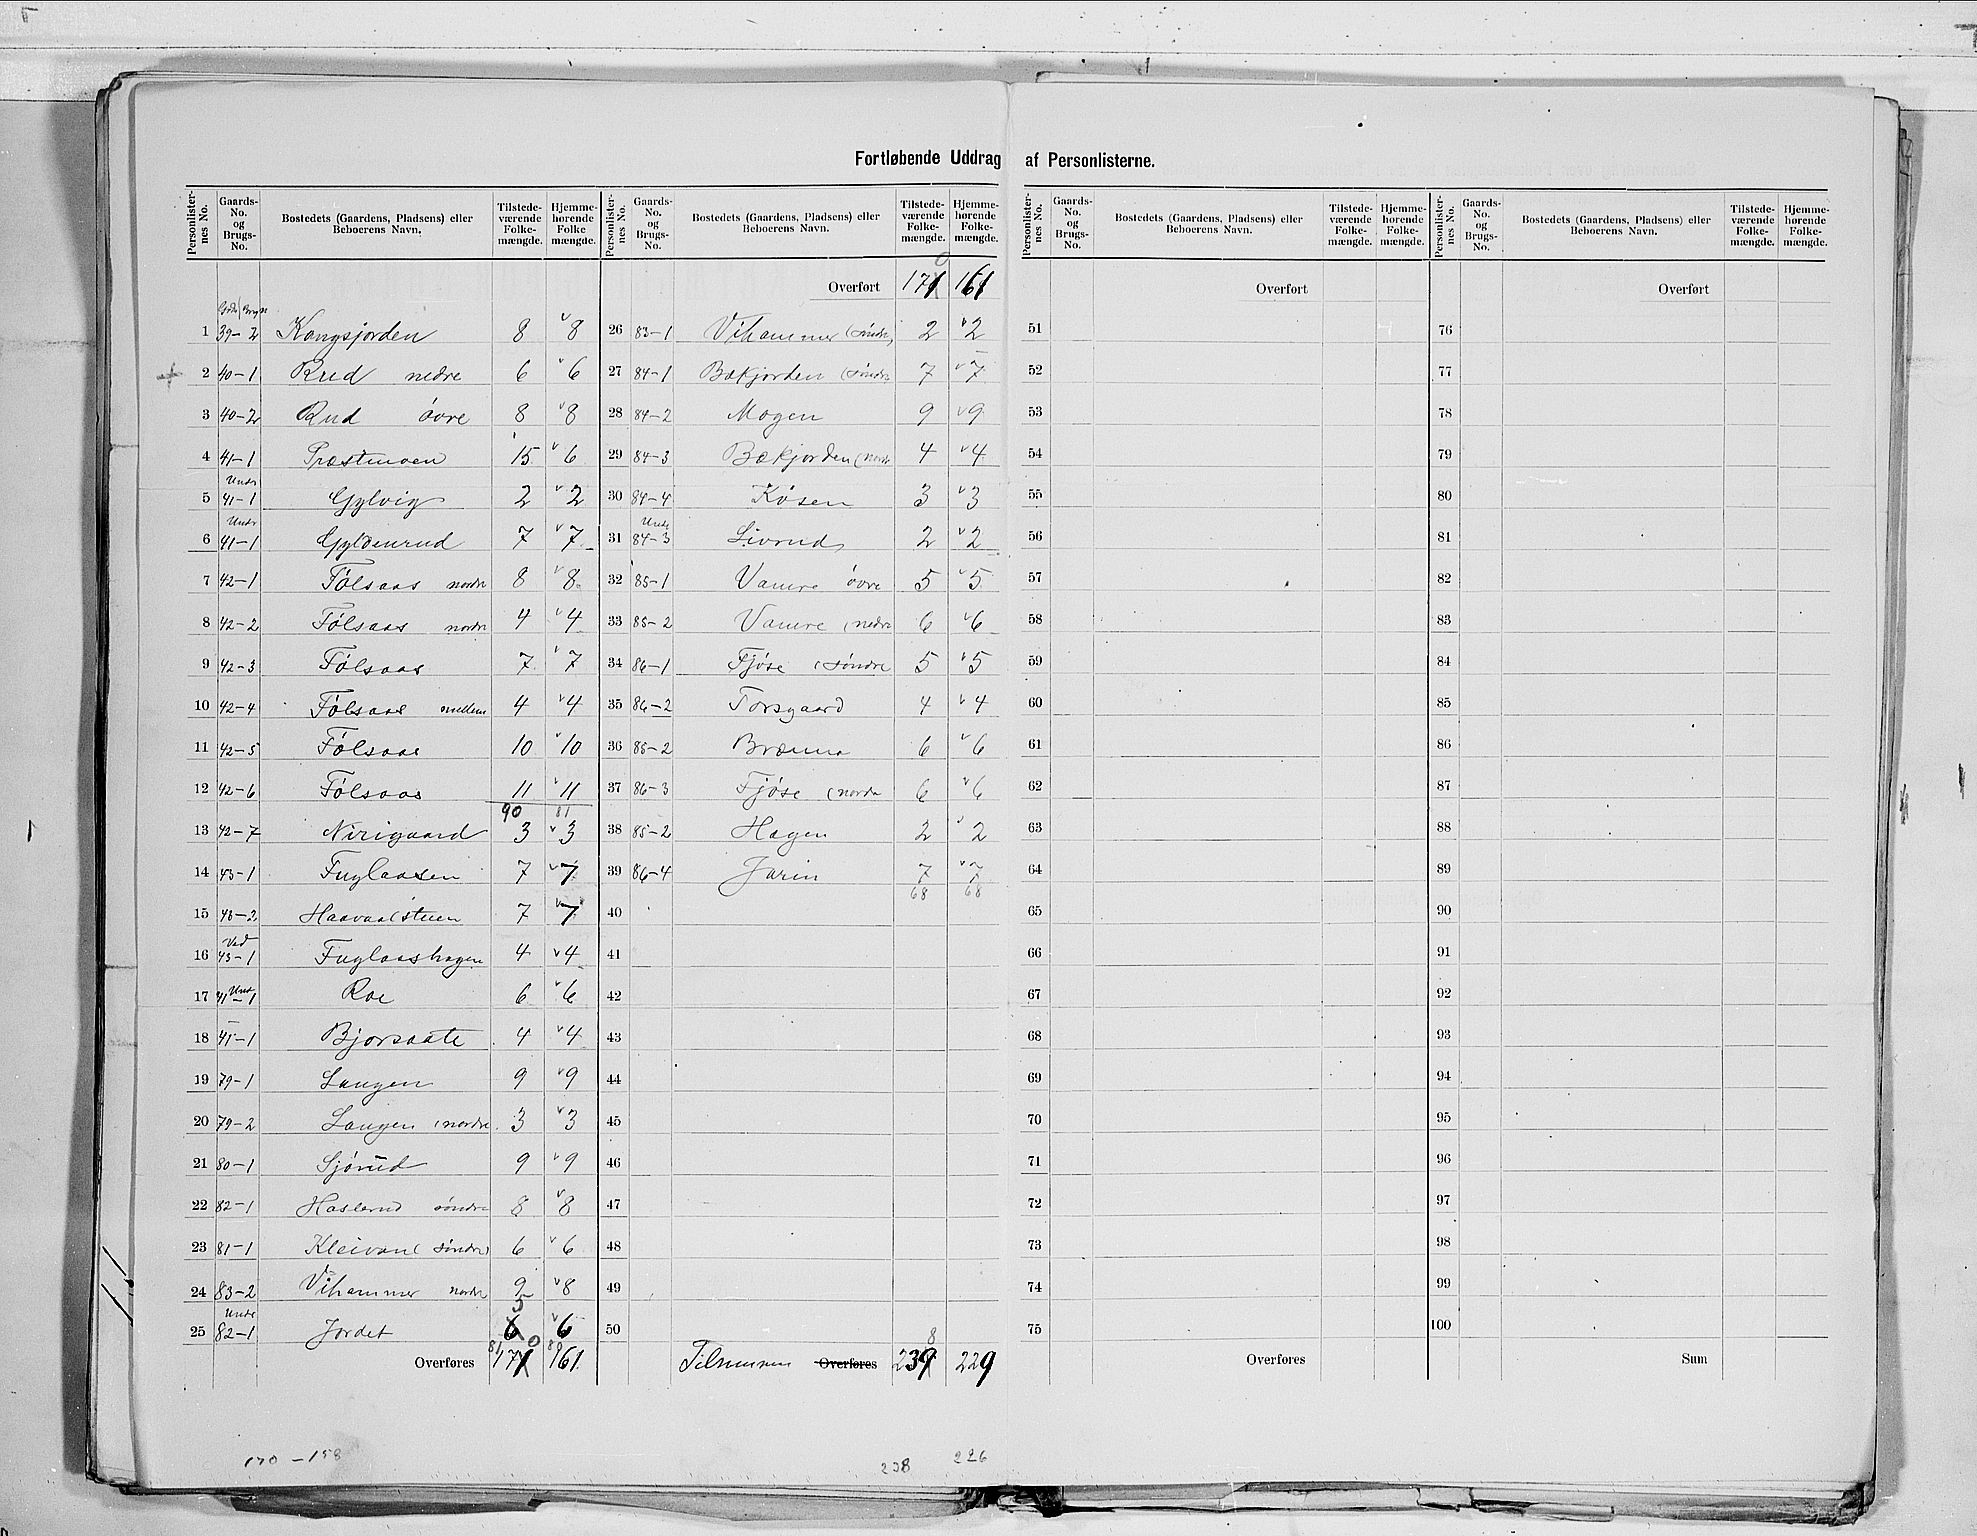 Fortløbende Uddrag af Personlisterne.
Personlister-nes No. | Gaards-No. og Brugs-No. | Bostedets (Gaardens, Pladsens) eller Beboerens Navn. | Tilstede-værende Folke-mængde. | Hjemme-hørende Folke mængde.
1 39-2 Kongsjorden 8 v8
2 40-1 Rud nedre 6 v6
3 40-2 Rud övre 8 v8
4 41-1 Præstmoen 15 v6
5 Under 41-1 Gylvig 2 v2
6 Under 41-1 Gyldenrud 7 v7
7 42-1 Følsaas nordre 8 v8
8 42-2 Følsaas nordre 4 v4
9 42-3 Følsaas 7 v7
10 42-4 Følsaas mellem 4 v4
11 42-5 Følsaas 10 v10
12 42-6 Følsaas 11 v11
90 81
13 42-7 Nirigaard 3 v3
14 43-1 Fuglaasen 7 v7
15 43-2 Haavaalstuen 7 v7
16 Ved 43-1 Fuglaashagen 4 v4
17 Und. 41-1 Roe 6 v6
18 45-1 Bjorsaate 4 v4
19 79-1 Langen 9 v9
20 79-2 Langen (nordre 3 v3
21 80-1 Sjørud 9 v9
22 82-1 Haslerud söndre 8 v8
23 81-1 Kleivan (söndre) 6 v6
24 83-2 Vihammer nordre 9 v8
25 Under 82-1 Jordet 6 5 v6
Overføres 81 171 0 80 161
170 - 158
Personlister-nes No. | Gaards-No. og Brugs-No. | Bostedets (Gaardens, Pladsens) eller Beboerens Navn. | Tilstede-værende Folke-mængde. | Hjemme-hørende Folke-mængde.
Overført 171 0 161
26 83-1 Vihammer (söndre) 2 v2
27 84-1 Bækjorden (söndre 7 v7
28 84-2 Mogen 9 v9
29 84-3 Bækjorden (nordr 4 v4
30 84-4 Kösen 3 v3
31 Under 84-3 Livrud 2 v2
32 85-1 Vamre övre 5 v5
33 85-2 Vamre (nedre 6 v6
34 86-1 Fjöse (söndre 5 v5
35 86-2 Torsgaard 4 v4
36 85-2 Brænna 6 v6
37 86-3 Fjöse (nordre 6 v6
38 85-2 Hagen 2 v2
39 86-4 Jarin 7 v7
68 68
40
41
42
43
44
45
46
47
48
49
50
Tilsammen Overføres 239 8 229
238 226
Personlister-nes No. | Gaards-No. og Brugs-No. | Bostedets (Gaardens, Pladsens) eller Beboerens Navn. | Tilstede-værende Folke-mængde. | Hjemme-hørende Folke-mængde.
Overført
51
52
53
54
55
56
57
58
59
60
61
62
63
64
65
66
67
68
69
70
71
72
73
74
75
Overføres
Personlister-nes No. | Gaards-No. og Brugs-No. | Bostedets (Gaardens, Pladsens) eller Beboerens Navn. | Tilstede-værende Folke-mængde. | Hjemme-hørende Folke-mængde.
Overført
76
77
78
79
80
81
82
83
84
85
86
87
88
89
90
91
92
93
94
95
96
97
98
99
100
Sum